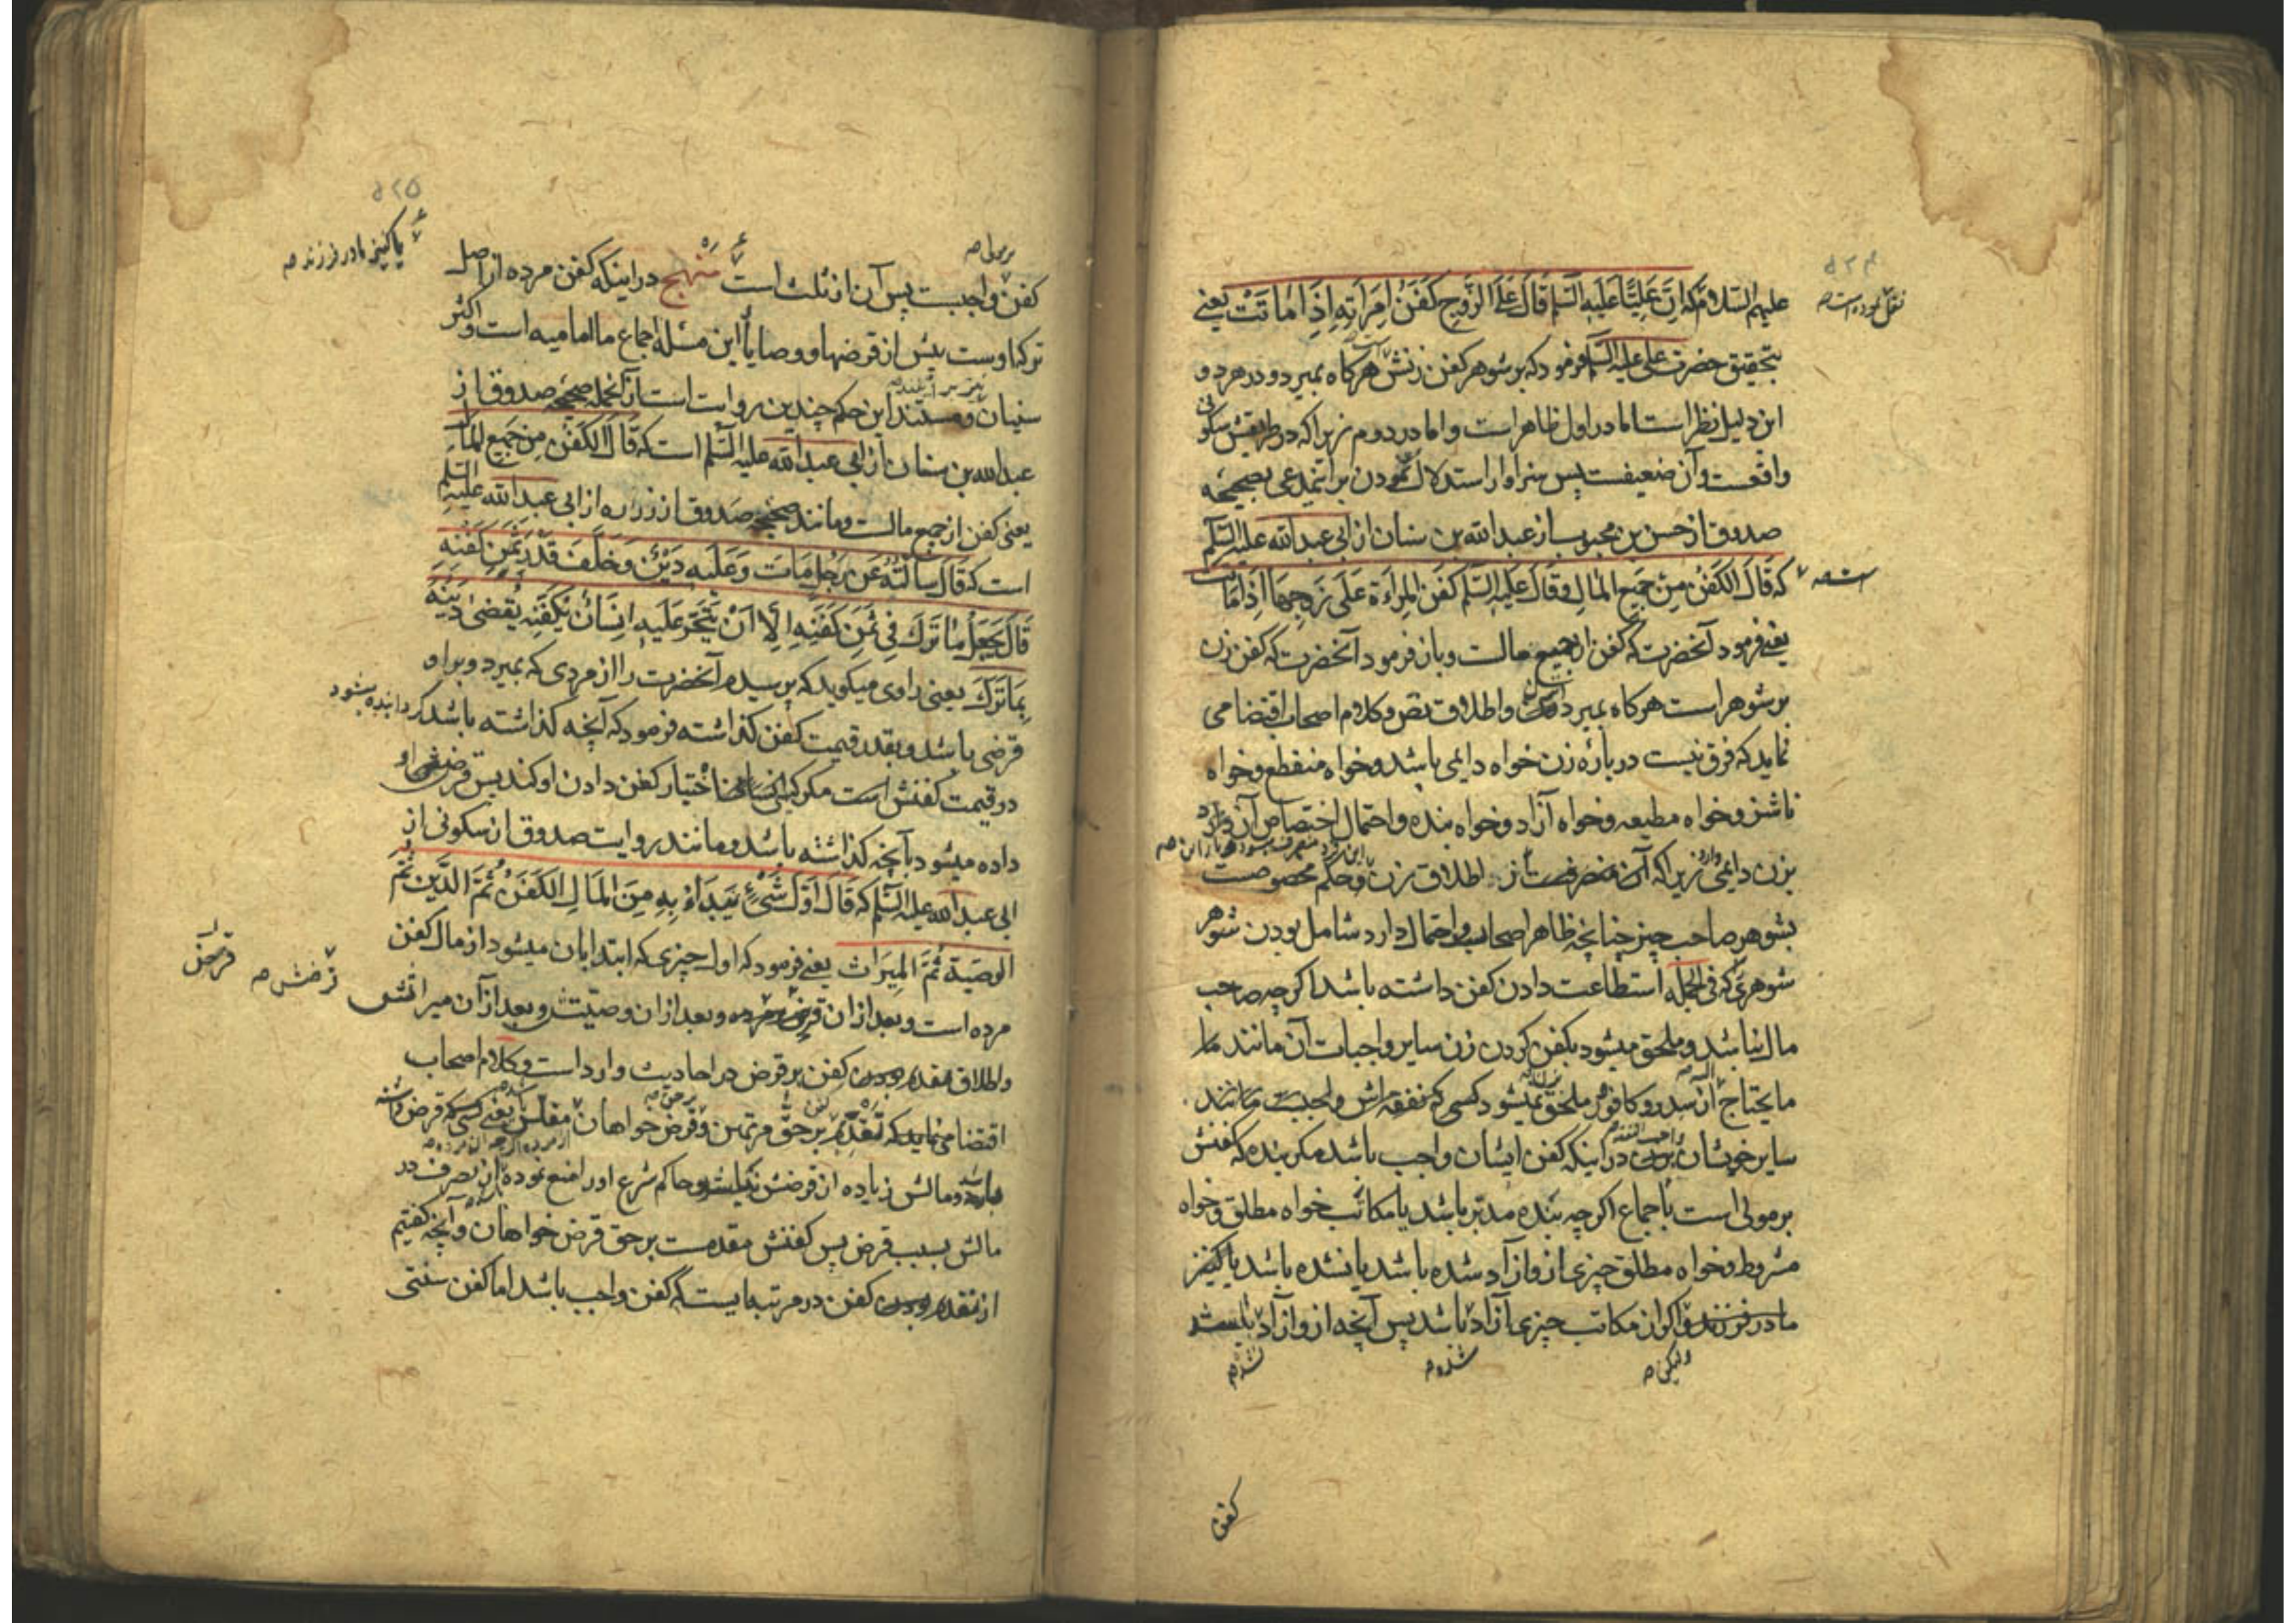 ۵۲۴
نقل نموده است صه
علیهم السلام که اِنَّ عَلِیًّا عَلَیهِ السَّلم قَالَ عَلَی الزَّوجِ کَفَنُ امرَاَتِهِ اِذَا مَاتَتْ یعنی
بتحقیق حضرت علی علیه السلم فرمود که بر شوهر کفن زنش است هرکاه بمیرد و در هر دو
این دلیل نظر است اما در اول ظاهر است و اما در دوم زیرا که در طریقش سکونی
واقعست و آن ضعیفست پس سزاوار استدلال نمودن بر این مدعی بصحیحه
صدوق از حسن بن محبوب از عبدالله بن سنان از ابی عبدالله علیه السلم
است صه
که قَالَ الکَفَنُ مِن جَمیعِ المَالِ وَقَالَ عَلَیهِ السَّلم کَفَنُ المَراَةِ عَلَی زَوجِهَا اِذَا مَاتَت
یعنی فرمود آنحضرت که کفن از جمیع مالست و باز فرمود آنحضرت که کفن زن
بر شوهر است هرکاه بمیرد و اطلاق نص و کلام اصحاب اقتضا می
نماید که فرق نیست در باره زن خواه دایمی باشد و خواه منقطع و خواه
ناشز و خواه مطیعه و خواه آزاد و خواه بنده و احتمال اختصاص آن دارد
بزن دایمی زیرا که آن از اطلاق زن و حکم مخصوصست
بشوهر صاحب چیز چنانچه ظاهر اصحاب و احتمال دارد شامل بودن شوهر
شوهری که فی الجمله استطاعت دادن کفن داشته باشد اکر چه صاحب
مال نباشد و ملحق میشود بکفن کردن زن سایر واجبات آن مانند ما
مایحتاج از سدر و کافور ملحق نمیشود کسی که نفقه اش واجبست مانند
سایر خویشان در اینکه کفن ایشان واجب باشد مکر بنده که کفنش
بر مولی است باجماع اکر چه بنده مدبر باشد یا مکاتب خواه مطلق و خواه
مشروط و خواه مطلق چیزی از و آزاد شده باشد یا نشده باشد یا کنیز
مادر فرزند و اکر از مکاتب چیزی آزاد باشد پس آنچه از و آزاد
ولیکن صه
شده صه
شده صه
کفن
۵۲۵
یا کنیز مادر فرزند صه
بر مولی صه
کفن واجبست پس آن از ثلث است مَنهج در اینکه کفن مرده از اصل
ترکه اوست پیش از قرضها و وصایا این مسئله اجماع ما امامیه است و اکثر
سنیان و مستند این حکم چندین روایت است از آنجمله صحیحه صدوق از
عبدالله بن سنان از ابی عبدالله علیه السّلم است که قَالَ الکَفَنُ مِن جَمیعِ المَالِ
یعنی کفن از جمیع مالست و مانند صحیحه صدوق از زراره از ابی عبدالله علیه السلم
است که قَالَ سَاَلتُهُ عَن رَجُلٍ مَاتَ وَعَلَیهِ دَیْنٌ وَخَلَّفَ قَدْرَ ثَمَنِ کَفَنِهِ
قَالَ یَجعَلُ مَا تَرَکَ فِی ثَمَنِ کَفَنِهِ اِلَّا اَنْ یَتَّجِرَ عَلَیهِ اِنسَانٌ یُکَفِّنِهِ یُقضَی دَینُهُ
بِمَا تَرَکَ یعنی راوی میکوید که پرسیدم آنحضرت را از مردی که بمیرد و بر او
قرضی باشد و بقدر قیمت کفن کذاشته فرمود که آنچه کذاشته باشد کردانیده شود
در قیمت کفنش است مکر اختیار کفن دادن او کند پس قرض او
داده میشود بآنچه کذاشته باشد و مانند روایت صدوق از سکونی از
ابی عبدالله علیه السّلم که قَالَ اَوَّلُ شَیْءٍ یُبدَاُ بِهِ مِنَ المَالِ الکَفَنُ ثُمَّ الدَّینُ ثُمَّ
الوَصِیَّة ثُمَّ المِیرَاث یعنی فرمود که اول چیزی که ابتدا بآن میشود از مال کفن
مرده است و بعد از ان و بعد از ان وصیتش و بعد از آن میراثش
قرضش صه
و اطلاق مقدم بودن کفن بر قرض در احادیث وارد است و کلام اصحاب
اقتضا مینماید که تقدم بر حق مرتهن و قرض خواهان مفلس یعنی کسی که قرض داشته
باشد و مالش زیاده از قرضش نباشد و حاکم شرع او را منع نموده از تصرف در
مالش بسبب قرض پس کفنش مقدمست بر حق قرض خواهان و آنچه کفتیم
از مقدم بودن کفن در مرتبه ایست که کفن واجب باشد اما کفن سنتی